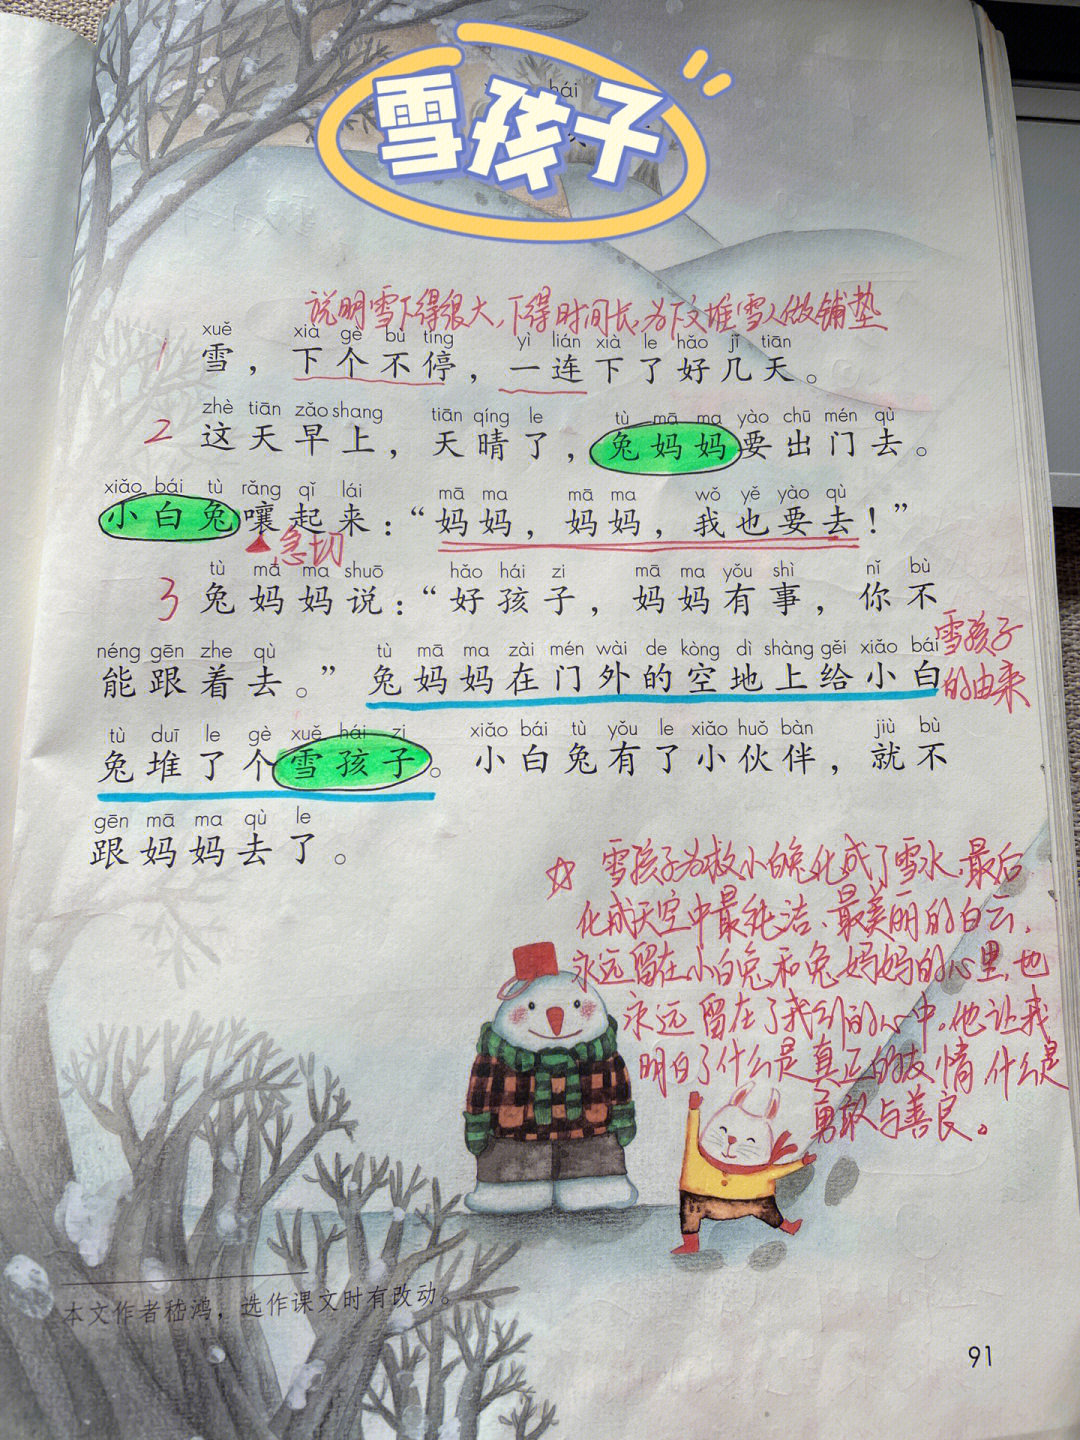 雪孩子
hái
说明雪下得很大，下得时间长，为下文堆雪人做铺垫
xuě xià gè bù tíng yì lián xià le hǎo jǐ tiān
1 雪，下个不停，一连下了好几天。
zhè tiān zǎo shang tiān qíng le tù mā ma yào chū mén qù
2 这天早上，天晴了，兔妈妈要出门去。
xiǎo bái tù rǎng qǐ lái mā ma mā ma wǒ yě yào qù
小白兔嚷起来：“妈妈，妈妈，我也要去！”
急切
tù mā ma shuō hǎo hái zi mā ma yǒu shì nǐ bù
3 兔妈妈说：“好孩子，妈妈有事，你不
néng gēn zhe qù tù mā ma zài mén wài de kòng dì shàng gěi xiǎo bái
能跟着去。”兔妈妈在门外的空地上给小白
雪孩子
的由来
tù duī le gè xuě hái zi xiǎo bái tù yǒu le xiǎo huǒ bàn jiù bù
兔堆了个雪孩子。小白兔有了小伙伴，就不
gēn mā ma qù le
跟妈妈去了。
☆ 雪孩子为救小白兔化成了雪水，最后
化成天空中最纯洁、最美丽的白云，
永远留在小白兔和兔妈妈的心里，也
永远留在了我们的心中。他让我
明白了什么是真正的友情，什么是
勇敢与善良。
本文作者嵇鸿，选作课文时有改动。
91